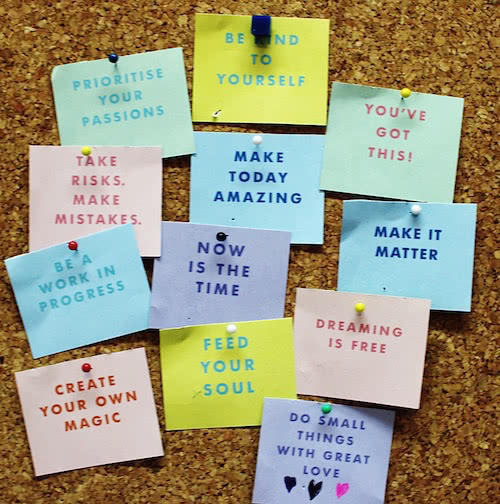 BE KIND
TO
YOURSELF
PRIORITISE
YOUR
PASSIONS
YOU'VE
GOT
THIS!
TAKE
RISKS.
MAKE
MISTAKES.
MAKE
TODAY
AMAZING
MAKE IT
MATTER
BE A
WORK IN
PROGRESS
NOW
IS THE
TIME
DREAMING
IS FREE
FEED
YOUR
SOUL
CREATE
YOUR OWN
MAGIC
DO SMALL
THINGS
WITH GREAT
LOVE